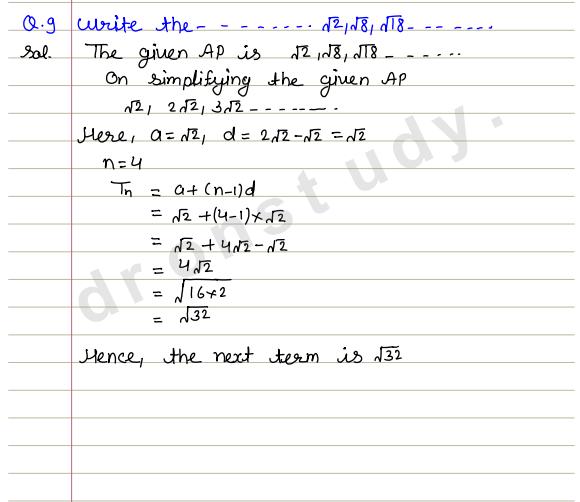 Q.9 Write the- - - - - - - - - √2,√8,√18- - - - - - - -
Sol. The given AP is √2,√8,√18- - - - - -
On simplifying the given AP
√2, 2√2, 3√2 - - - - - - - -
Here, a = √2, d = 2√2-√2 = √2
n=4
Tn = a+(n-1)d
= √2 +(4-1)×√2
= √2 + 4√2-√2
= 4√2
= √16×2
= √32
Hence, the next term is √32
dronstudy.